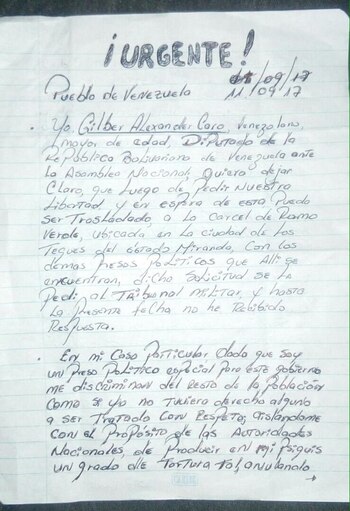 ¡URGENTE!
/09/17
Pueblo de Venezuela 11/09/17
. Yo, Gilber Alexander Caro, Venezolano,
mayor de edad, Diputado de la
República Bolivariana de Venezuela ante
la Asamblea Nacional, quiero dejar
Claro, que luego de pedir nuestra
Libertad, y en espera de esta Puedo
ser Trasladado, a la Carcel de Ramo
Verde, ubicada en la ciudad de los
Teques del estado Miranda, con los
demas Presos Politicos que alli se
encuentran, dicha Solicitud se la
Pedi al Tribunal Militar, y hasta
la Presente fecha no he Recibido
Respuesta.
. En mi Caso Particular dado que soy
un Preso Politico especial Para este gobierno
me discriminan del resto de la Población
Como si yo no tuviera derecho alguno
a ser Tratado con Respeto, aislandome
con el Proposito de las Autoridades
Nacionales, de Producir en mi Psiquis
un grado de Tortura tal, anulando